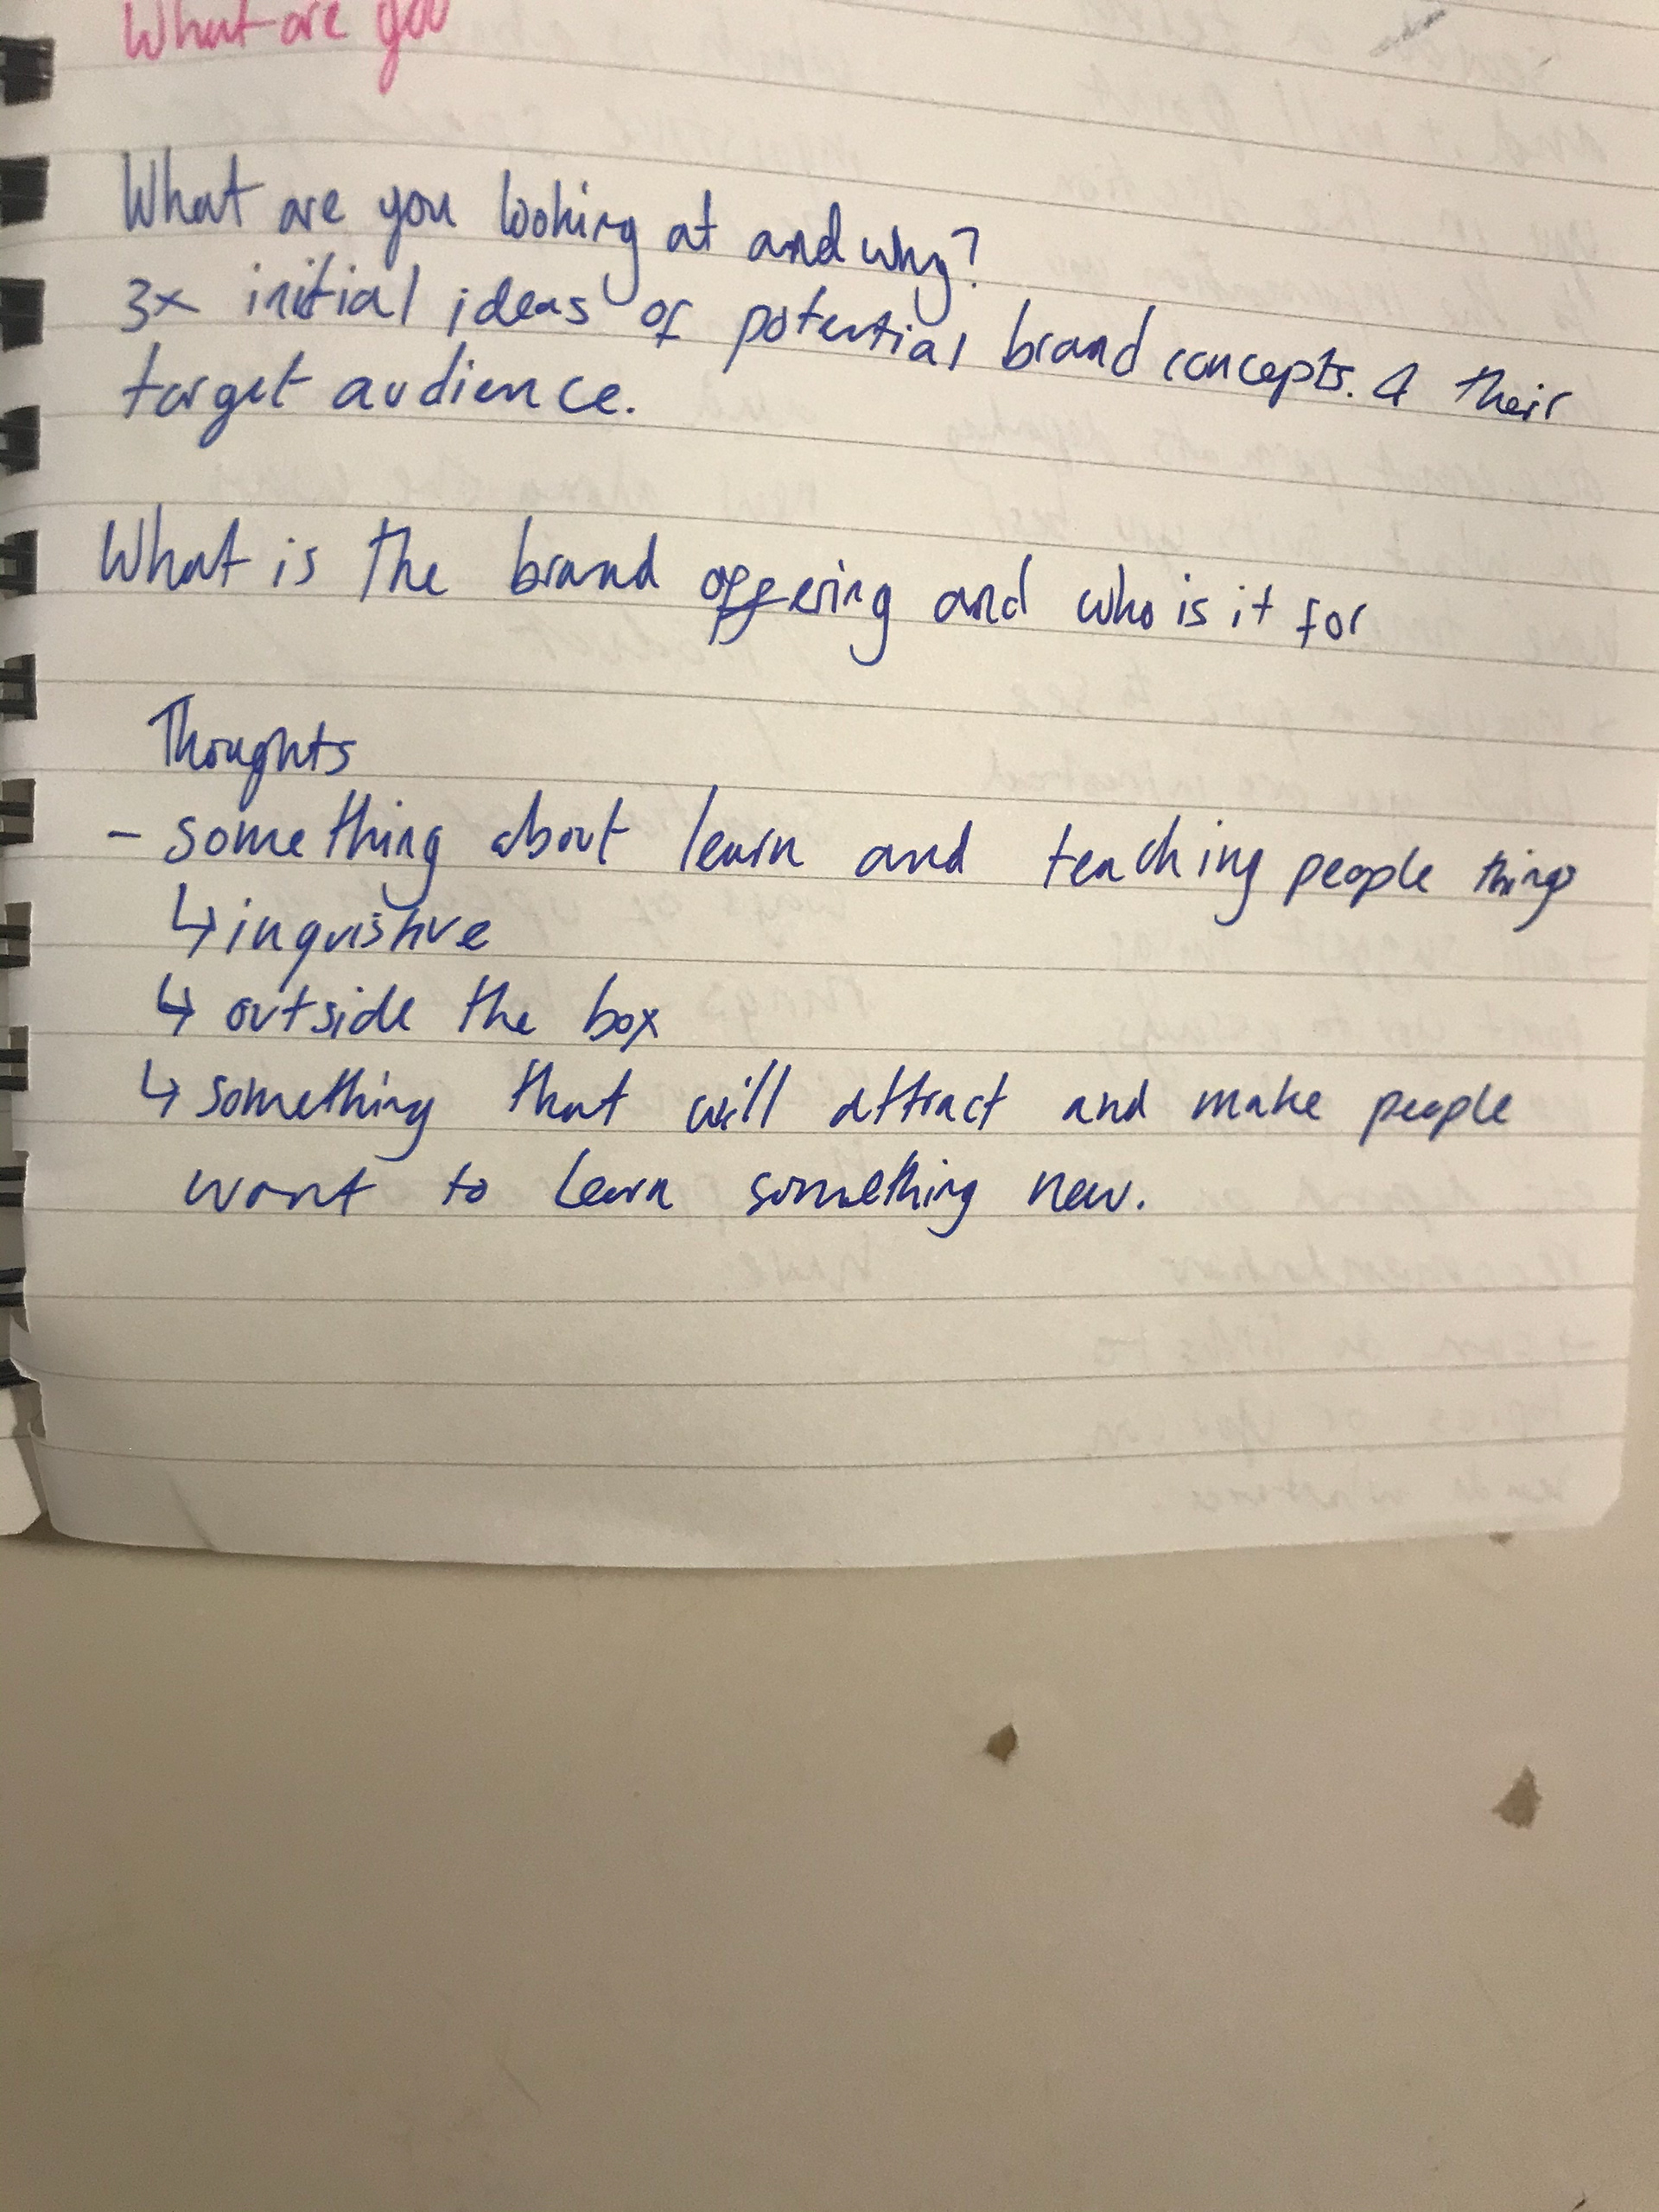 What are you
What are you looking at and why?
3x initial ideas of potential brand concepts. & their
target audience.
What is the brand offering and who is it for
Thoughts
- something about learn and teaching people things
↳ inquistive
↳ outside the box
↳ something that will attract and make people
want to learn something new.